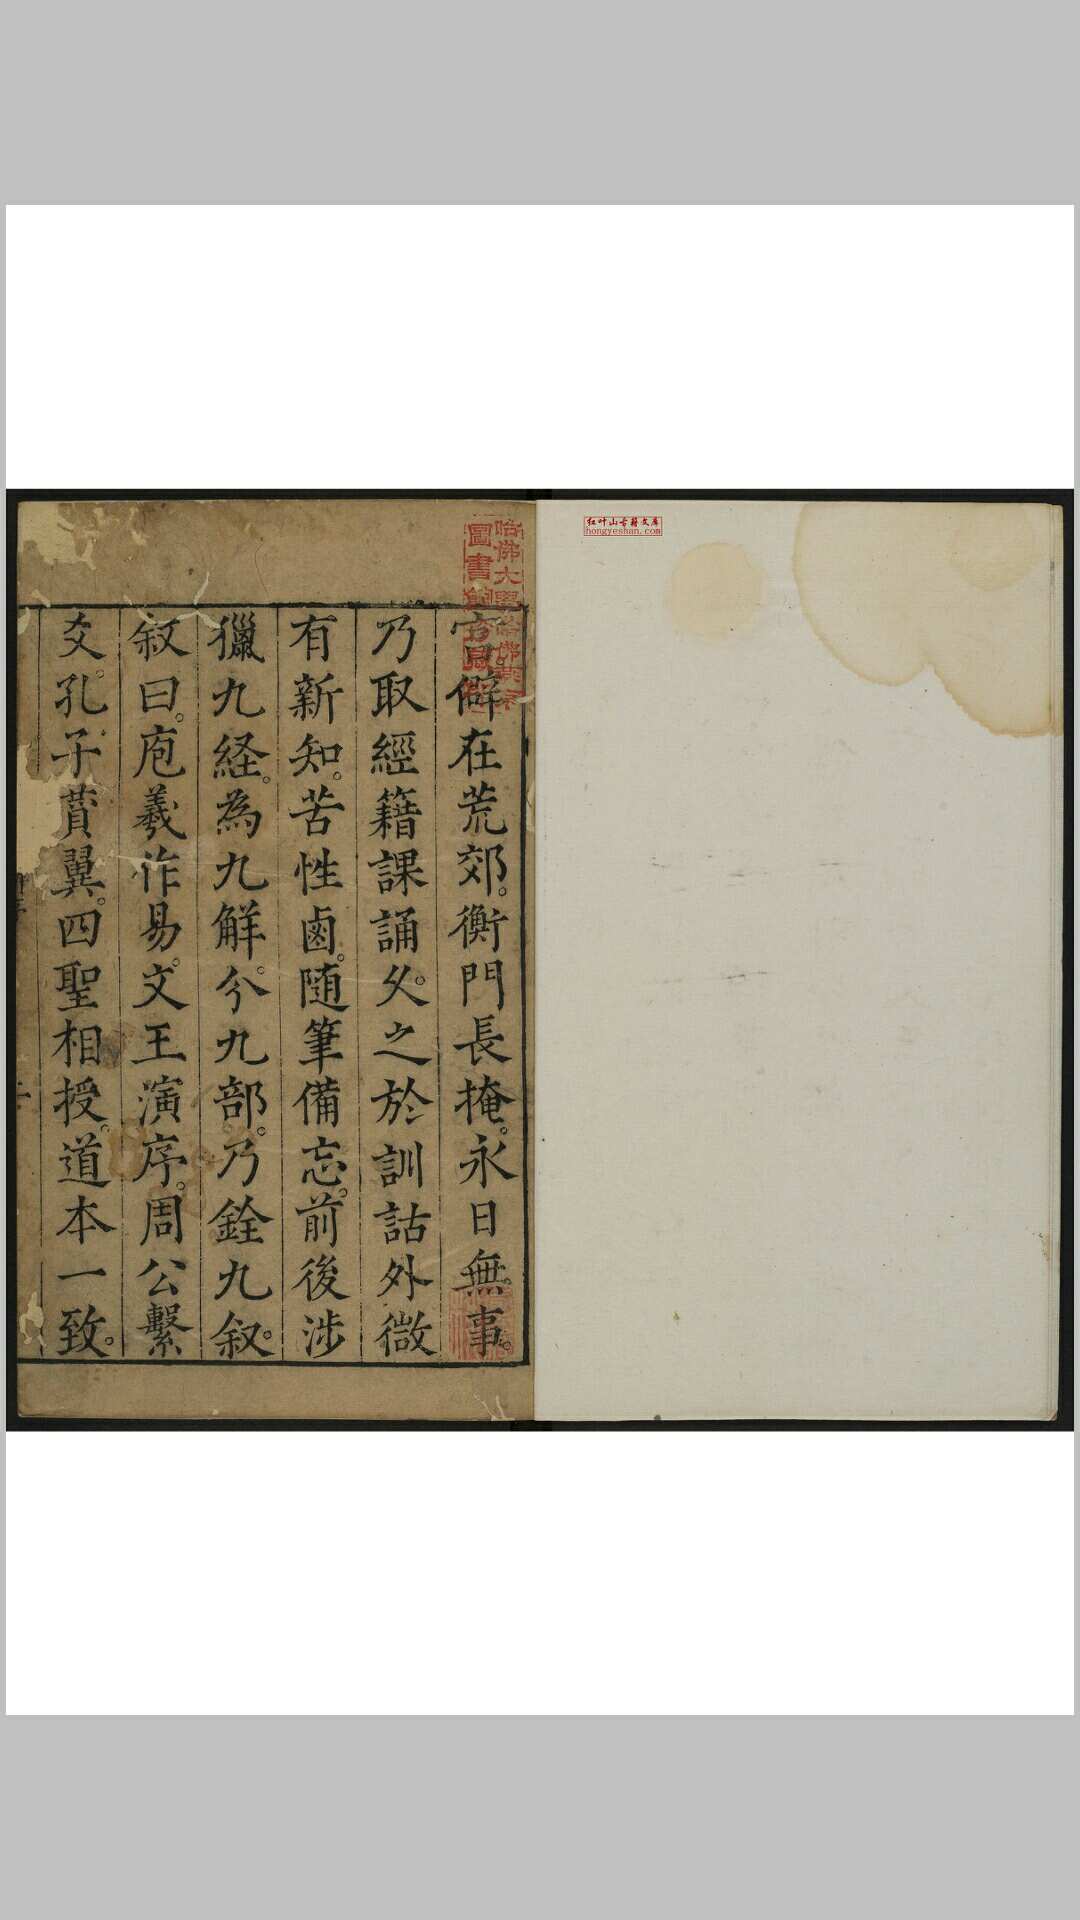 红叶山古籍文库
hongyeshan.com
官居僻在荒郊。衡門長掩。永日無事。
乃取經籍課誦久。之於訓詁外微
有新知。苦性鹵。随筆備忘。前後涉
獵九経。為九解。分九部。乃銓九叙。
叙曰。庖羲作易。文王演序。周公繫
爻。孔子賛翼。四聖相授。道本一致。